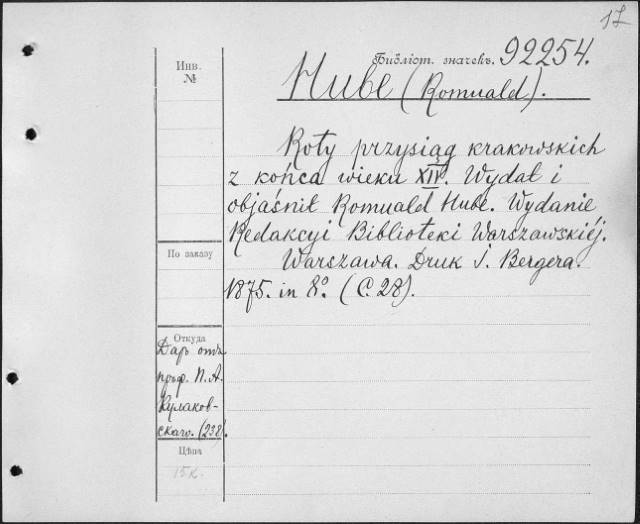 17
Инв.
№
Библіот. значекъ. 92254.
Hube (Romuald).
Roty przysiąg krakowskich
z końca wieku XIV. Wydał i
objaśnił Romuald Hube. Wydanie
Redakcyi Biblioteki Warszawskiéj.
Warszawa. Druk J. Bergera.
1875. in 8º. (C. 28).
По заказу
Откуда
Даръ отъ
проф. П. А.
Кулаков-
скаго. (238).
Цѣна
15к.